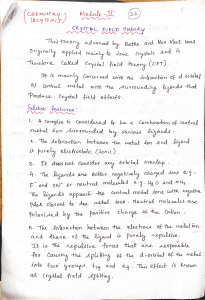 CHEMISTRY
Module - II
26
CRYSTAL FIELD THEORY
This theory advanced by Bethe and Van Vleck was
originally applied mainly to ionic crystals and is
therefore called crystal field theory (CFT)
It is mainly concerned with the interaction of d orbital
of central metal with the surrounding ligands that
produce crystal field effects.
Salient features:
1. A complex is considered to be a combination of central
metal ion surrounded by various ligands.
2. The interaction between the metal ion and ligand
is purely electrostatic (ionic).
3. It does not consider any orbital overlap.
4. The ligands are either negatively charged ions e.g.
F and CN or neutral molecules e.g. H2O and NH3
The ligands approach the central metal ion with negative
poles closest to the metal ion. Neutral molecules are
polarised by the positive charge of the cation.
5. The interaction between the electrons of the metal ion
and those of the ligand is purely repulsive.
It is the repulsive forces that are responsible
for causing the splitting of the d-orbital of the metal
into two groups t2g and eg. This effect is known
as crystal field splitting.